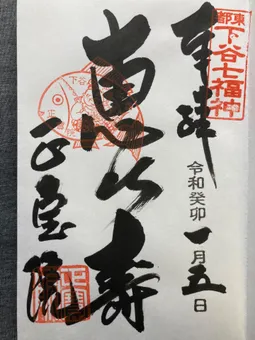 東都
下谷七福神
奉拝
令和癸卯一月五日
恵比寿
下谷
正宝院